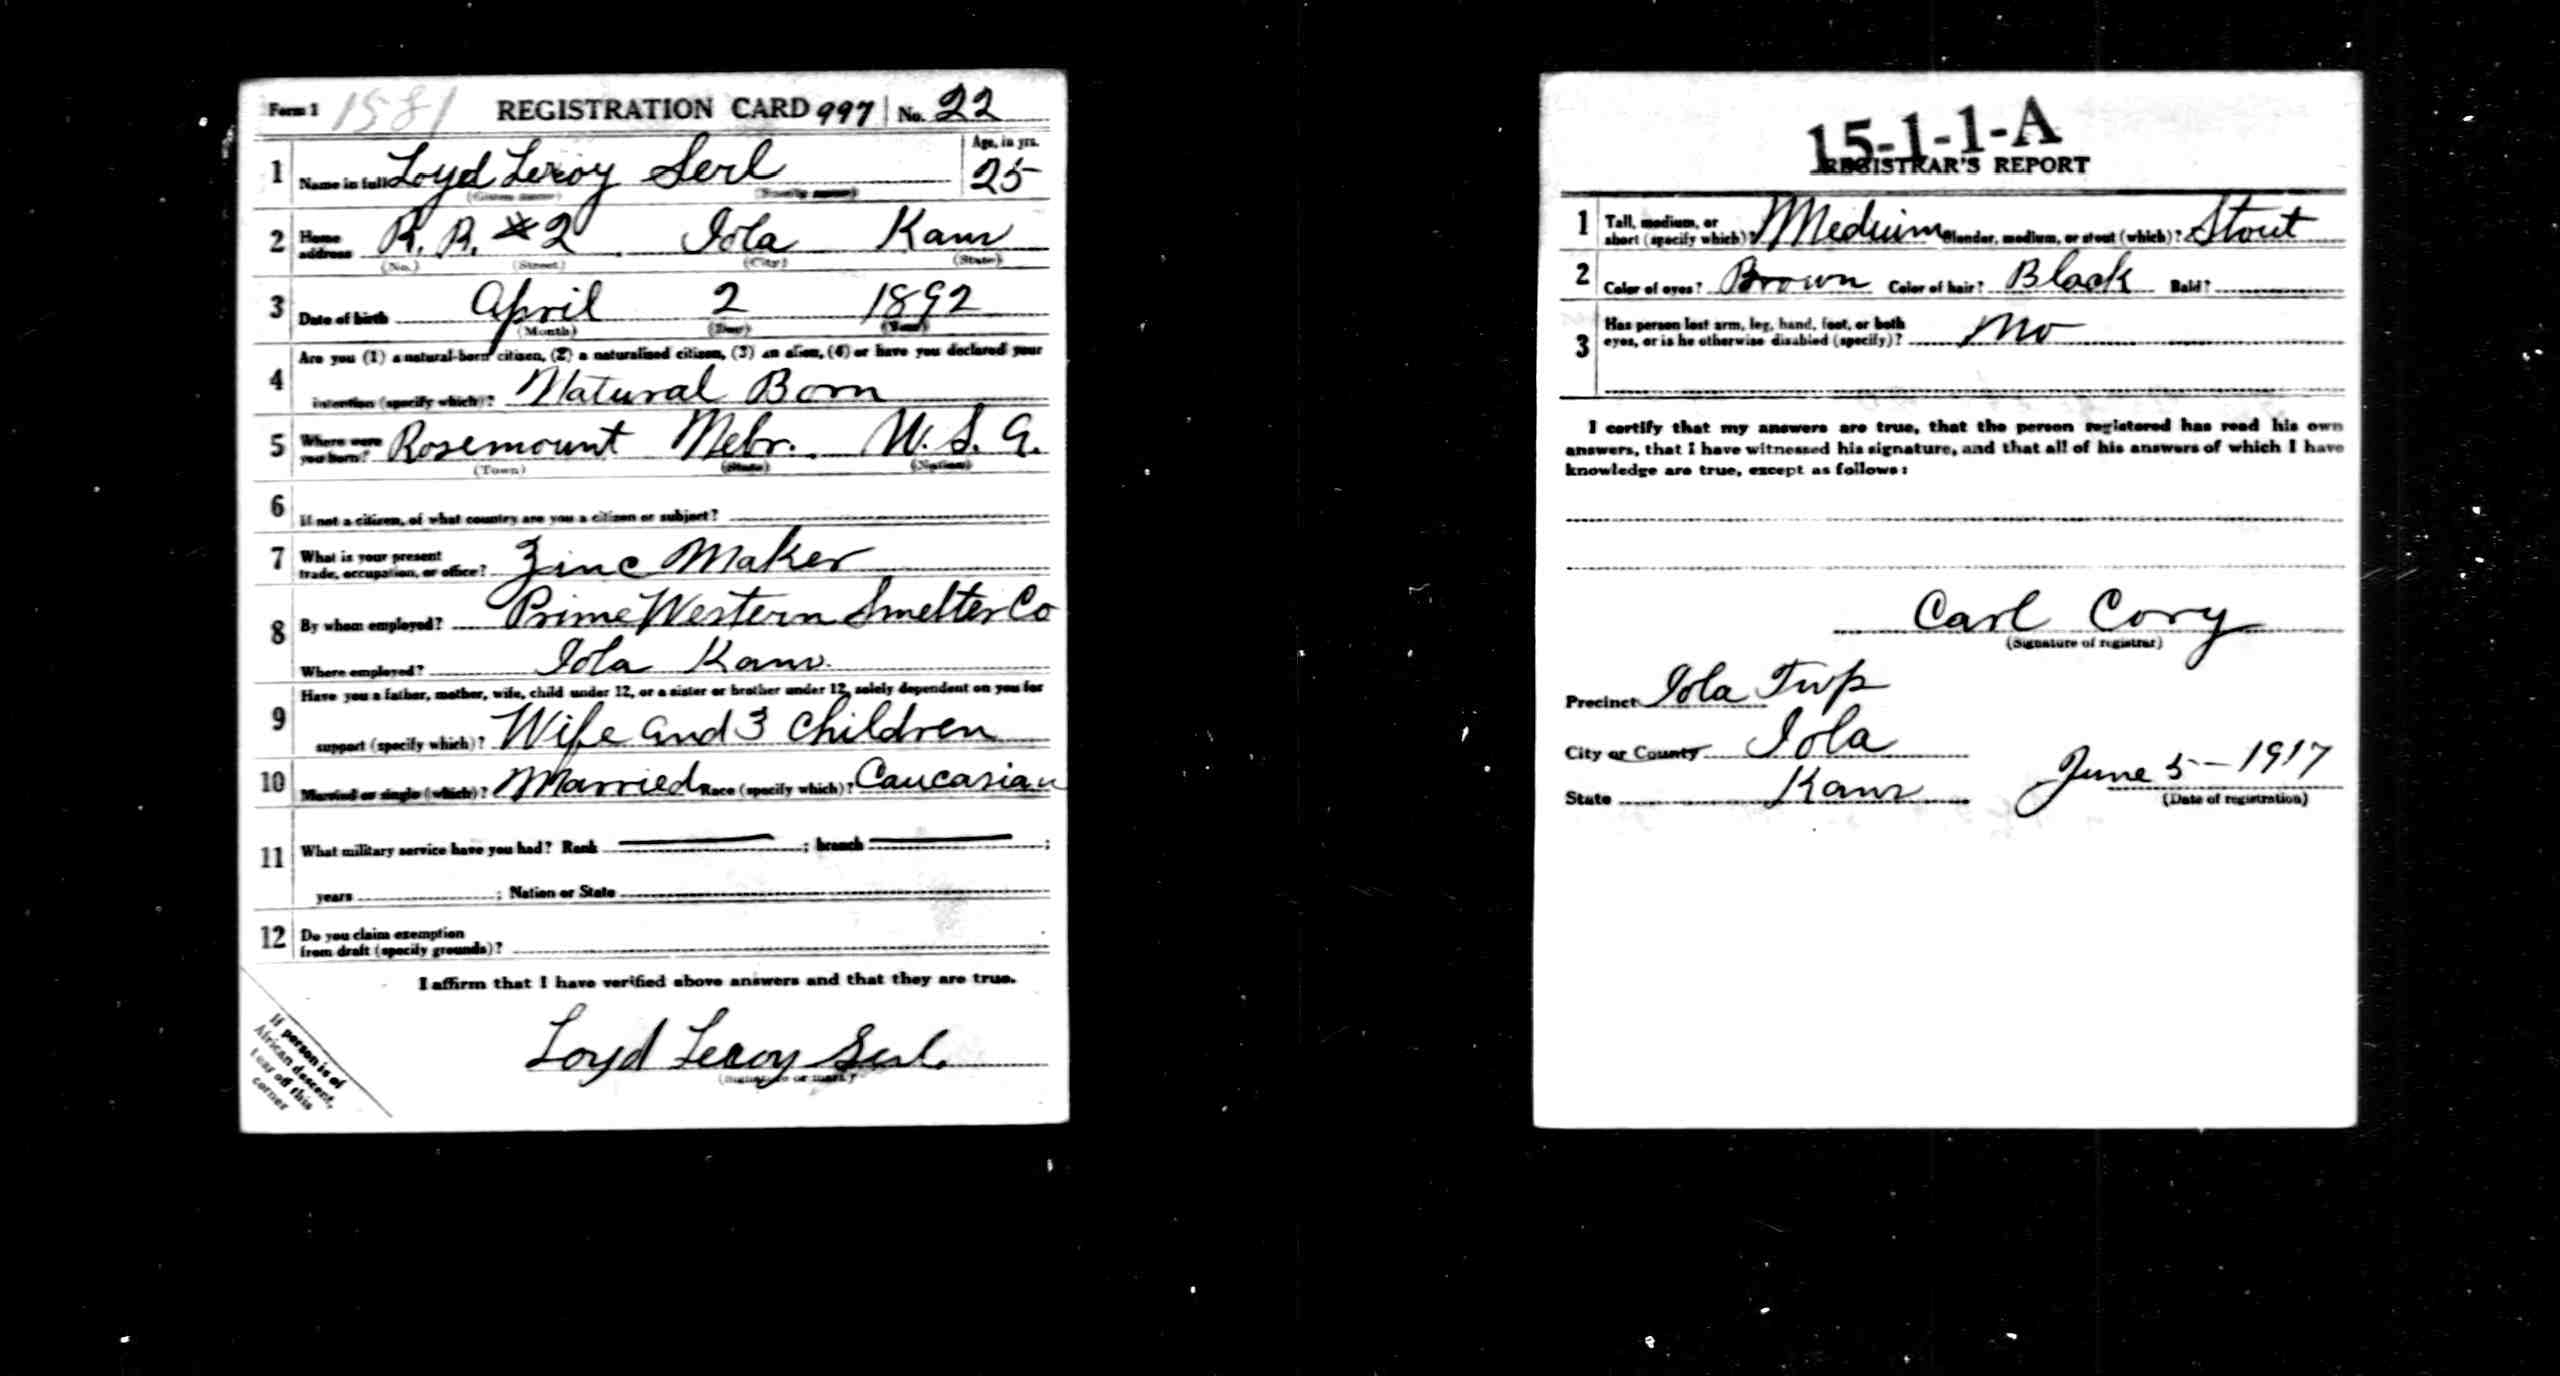 Form 1 1581 REGISTRATION CARD 997 No. 22
1 Name in full Loyd Leroy Serl Age, in yrs.
(Given name) (Family name) 25
2 Home address R. R. #2 Iola Kans
(No.) (Street) (City) (State)
3 Date of birth April 2 1892
(Month) (Day) (Year)
4 Are you (1) a natural-born citizen, (2) a naturalized citizen, (3) an alien, (4) or have you declared your
intention (specify which)? Natural Born
5 Where were you born? Rosemount Nebr. U. S. A.
(Town) (State) (Nation)
6 If not a citizen, of what country are you a citizen or subject?
7 What is your present
trade, occupation, or office? Zinc Maker
8 By whom employed? Prime Western Smelter Co
Where employed? Iola Kans.
9 Have you a father, mother, wife, child under 12, or a sister or brother under 12, solely dependent on you for
support (specify which)? Wife and 3 Children
10 Married or single (which)? Married Race (specify which)? Caucasian
11 What military service have you had? Rank ; branch ;
years ; Nation or State
12 Do you claim exemption
from draft (specify grounds)?
I affirm that I have verified above answers and that they are true.
Loyd Leroy Serl
(Signature or mark)
If person is of
African descent,
tear off this
corner
15-1-1-A
REGISTRAR'S REPORT
1 Tall, medium, or
short (specify which)? Medium Slender, medium, or stout (which)? Stout
2 Color of eyes? Brown Color of hair? Black Bald?
3 Has person lost arm, leg, hand, foot, or both
eyes, or is he otherwise disabled (specify)? No
I certify that my answers are true, that the person registered has read his own
answers, that I have witnessed his signature, and that all of his answers of which I have
knowledge are true, except as follows:
Carl Cory
(Signature of registrar)
Precinct Iola Twp
City or County Iola
State Kans June 5-1917
(Date of registration)